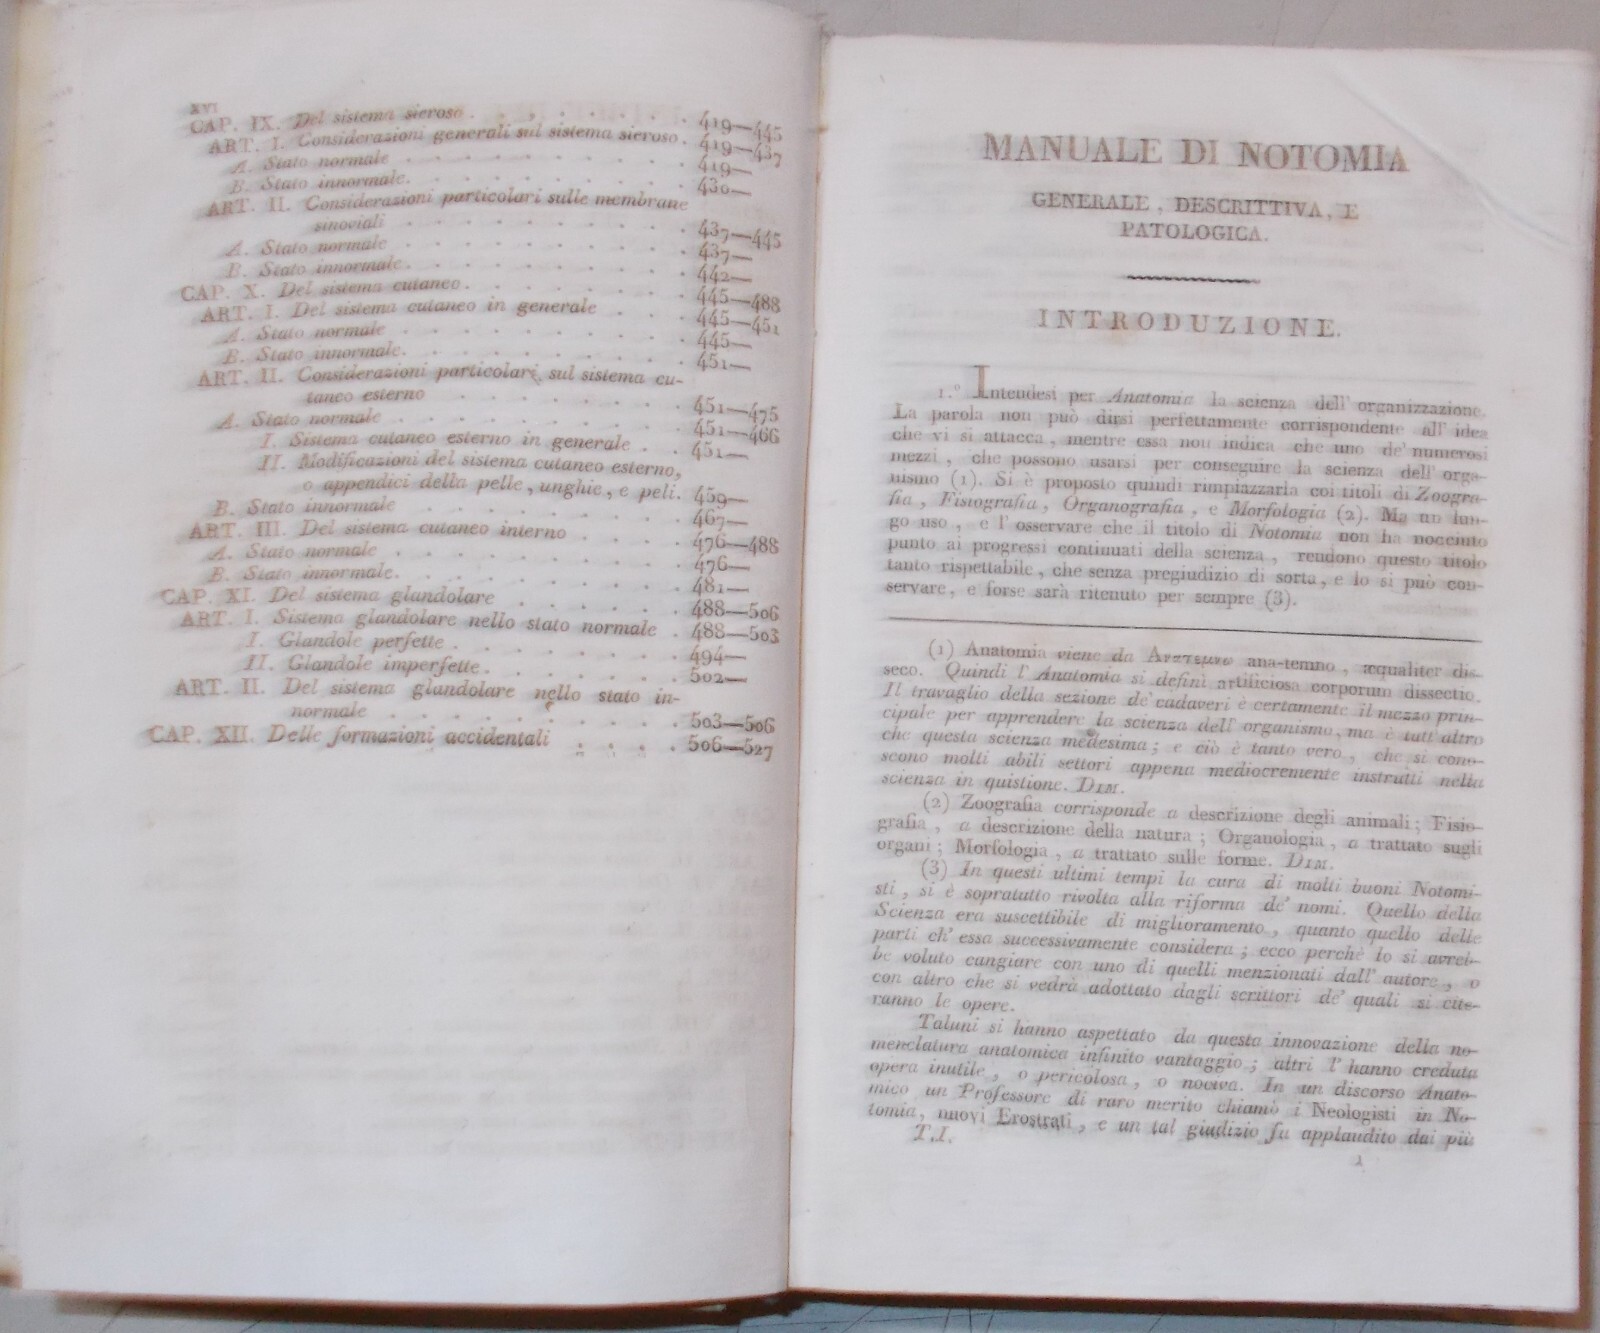 XVI
CAP. IX. Del sistema sieroso . . . . . . . 419—445
ART. I. Considerazioni generali sul sistema sieroso. 419—437
A. Stato normale . . . . . . . . 419—
B. Stato innormale. . . . . . . . 430—
ART. II. Considerazioni particolari sulle membrane
sinoviali . . . . . . . . 437—445
A. Stato normale . . . . . . . . 437—
B. Stato innormale. . . . . . . . 442—
CAP. X. Del sistema cutaneo. . . . . . . 445—488
ART. I. Del sistema cutaneo in generale . . . 445—451
A. Stato normale . . . . . . . . 445—
B. Stato innormale. . . . . . . . 451—
ART. II. Considerazioni particolari sul sistema cu-
taneo esterno . . . . . . . 451—475
A. Stato normale . . . . . . . . 451—466
I. Sistema cutaneo esterno in generale . . 451—
II. Modificazioni del sistema cutaneo esterno,
o appendici della pelle, unghie, e peli. 459—
B. Stato innormale . . . . . . . . 467—
ART. III. Del sistema cutaneo interno . . . . 476—488
A. Stato normale . . . . . . . . 476—
B. Stato innormale. . . . . . . . 481—
CAP. XI. Del sistema glandolare . . . . . 488—506
ART. I. Sistema glandolare nello stato normale . 488—503
I. Glandole perfette . . . . . . . 494—
II. Glandole imperfette. . . . . . . 502—
ART. II. Del sistema glandolare nello stato in-
normale . . . . . . . . 503—506
CAP. XII. Delle formazioni accidentali . . . . 506—527
MANUALE DI NOTOMIA
GENERALE, DESCRITTIVA, E
PATOLOGICA.
INTRODUZIONE.
1.° Intendesi per Anatomia la scienza dell' organizzazione.
La parola non può dirsi perfettamente corrispondente all' idea
che vi si attacca, mentre essa non indica che uno de' numerosi
mezzi, che possono usarsi per conseguire la scienza dell' orga-
nismo (1). Si è proposto quindi rimpiazzarla coi titoli di Zoogra-
fia, Fisiografia, Organografia, e Morfologia (2). Ma un lun-
go uso, e l' osservare che il titolo di Notomia non ha nociuto
punto ai progressi continuati della scienza, rendono questo titolo
tanto rispettabile, che senza pregiudizio di sorta, e lo si può con-
servare, e forse sarà ritenuto per sempre (3).
(1) Anatomia viene da Ανατεμνω ana-temno, æqualiter dis-
seco. Quindi l' Anatomia si definì artificiosa corporum dissectio.
Il travaglio della sezione de' cadaveri è certamente il mezzo prin-
cipale per apprendere la scienza dell' organismo, ma è tutt' altro
che questa scienza medesima; e ciò è tanto vero, che si cono-
scono molti abili settori appena mediocremente instrutti nella
scienza in quistione. DIM.
(2) Zoografia corrisponde a descrizione degli animali; Fisio-
grafia, a descrizione della natura; Organologia, a trattato sugli
organi; Morfologia, a trattato sulle forme. DIM.
(3) In questi ultimi tempi la cura di molti buoni Notomi-
sti, si è sopratutto rivolta alla riforma de' nomi. Quello della
Scienza era suscettibile di miglioramento, quanto quello delle
parti ch' essa successivamente considera; ecco perchè lo si avreb-
be voluto cangiare con uno di quelli menzionati dall' autore, o
con altro che si vedrà adottato dagli scrittori de' quali si cite-
ranno le opere.
Taluni si hanno aspettato da questa innovazione della no-
menclatura anatomica infinito vantaggio; altri l' hanno creduta
opera inutile, o pericolosa, o nociva. In un discorso Anato-
mico un Professore di raro merito chiamò i Neologisti in No-
tomia, nuovi Erostrati, e un tal giudizio fu applaudito dai più
T.I. 1